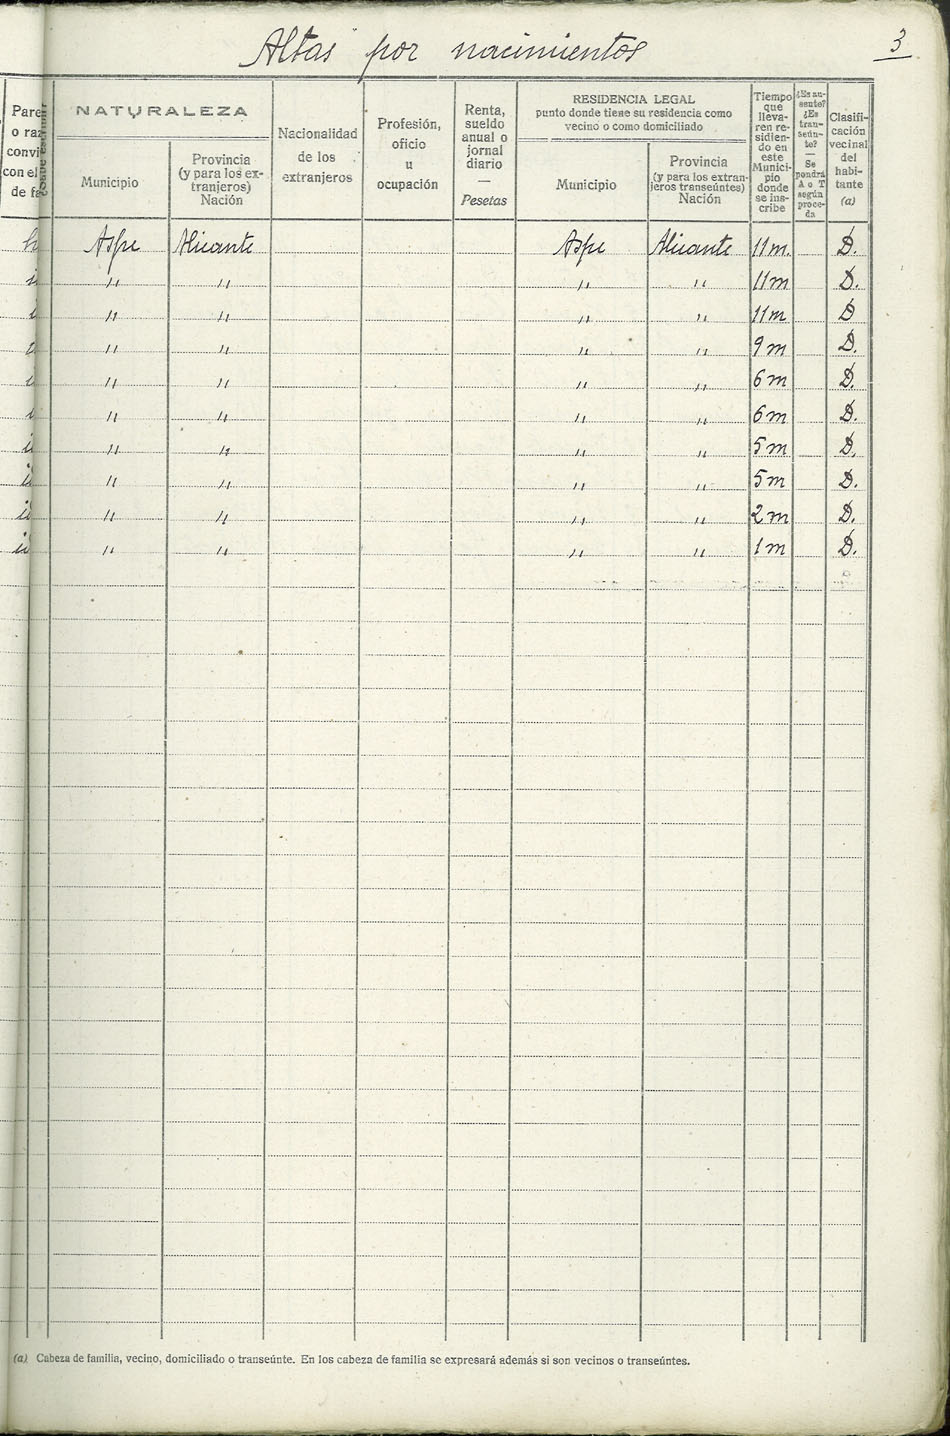 Altas por nacimientos
3
Pare
o raz
convi
con el
de fa
NATURALEZA
Municipio
Provincia
(y para los ex-
tranjeros)
Nación
Nacionalidad
de los
extranjeros
Profesión,
oficio
u
ocupación
Renta,
sueldo
anual o
jornal
diario
—
Pesetas
RESIDENCIA LEGAL
punto donde tiene su residencia como
vecino o como domiciliado
Municipio
Provincia
(y para los extran-
jeros transeúntes)
Nación
Tiempo
que
lleva-
ren re-
sidien-
do en
este
Munici-
pio
donde
se ins-
cribe
¿Es au-
sente?
¿Es
tran-
seún-
te?
—
Se
pondrá
A o T
según
proce-
da
Clasifi-
cación
vecinal
del
habi-
tante
(a)
h Aspe Alicante Aspe Alicante 11 m. D.
i " " " " 11 m D.
" " " " 11 m D
" " " " 9 m D.
" " " " 6 m D.
" " " " 6 m D.
i " " " " 5 m D.
i " " " " 5 m D.
i " " " " 2 m D.
i " " " " 1 m D.
(a) Cabeza de familia, vecino, domiciliado o transeúnte. En los cabeza de familia se expresará además si son vecinos o transeúntes.